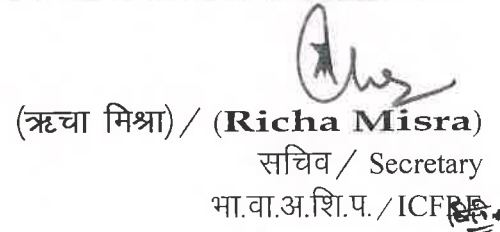 (ऋचा मिश्रा) / (Richa Misra)
सचिव / Secretary
भा.वा.अ.शि.प. / ICFRE